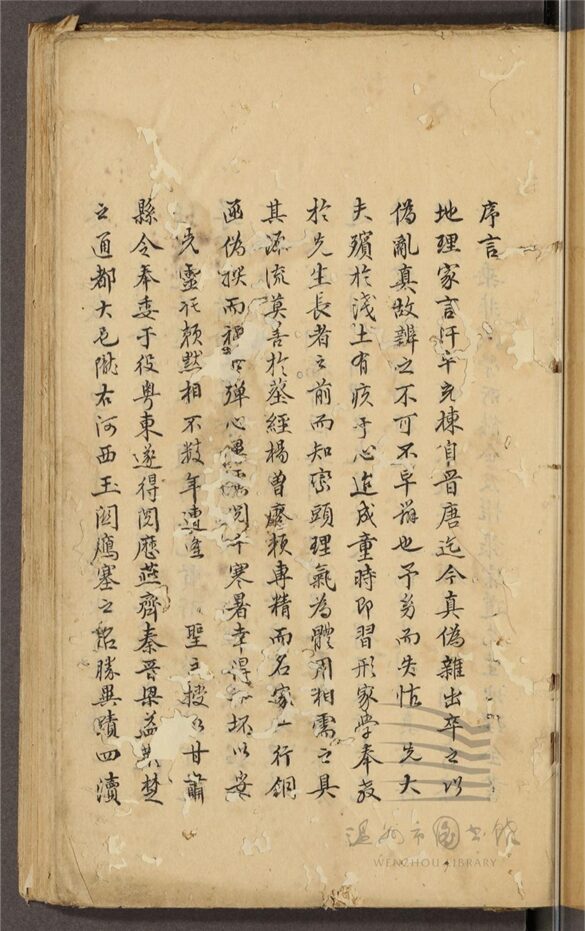 序言
地理家言汗牛充棟自晉唐迄今真偽雜出卒之以
偽亂真故辨之不可不早辨也予努而失怙 先大
夫殯於淺土有疚于心迨成童時即習形家學奉教
於先生長者之前而知巒頭理氣為體用相需之具
其源流莫善於葬經楊曾廖賴專精而名家一行銅
函偽撰而禍 殫心 閱 寒暑幸得 坏以安
先靈 賴默相不數年遭逢 聖主授以甘肅
縣令奉委于役粵東遂得閱歷燕齊秦晉梁益荊楚
之通都大邑隴右河西玉関鴈塞之 勝異蹟四瀆
温州市图书馆
WENZHOU LIBRARY